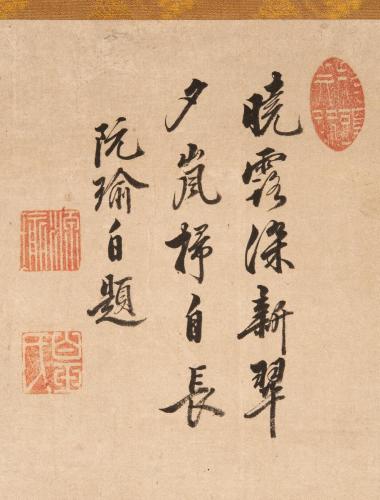 暁露深新翠
夕嵐掃自長
阮瑜自題